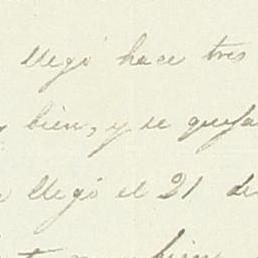 llegó hace tres
bien, y se queja
llegó el 21 de